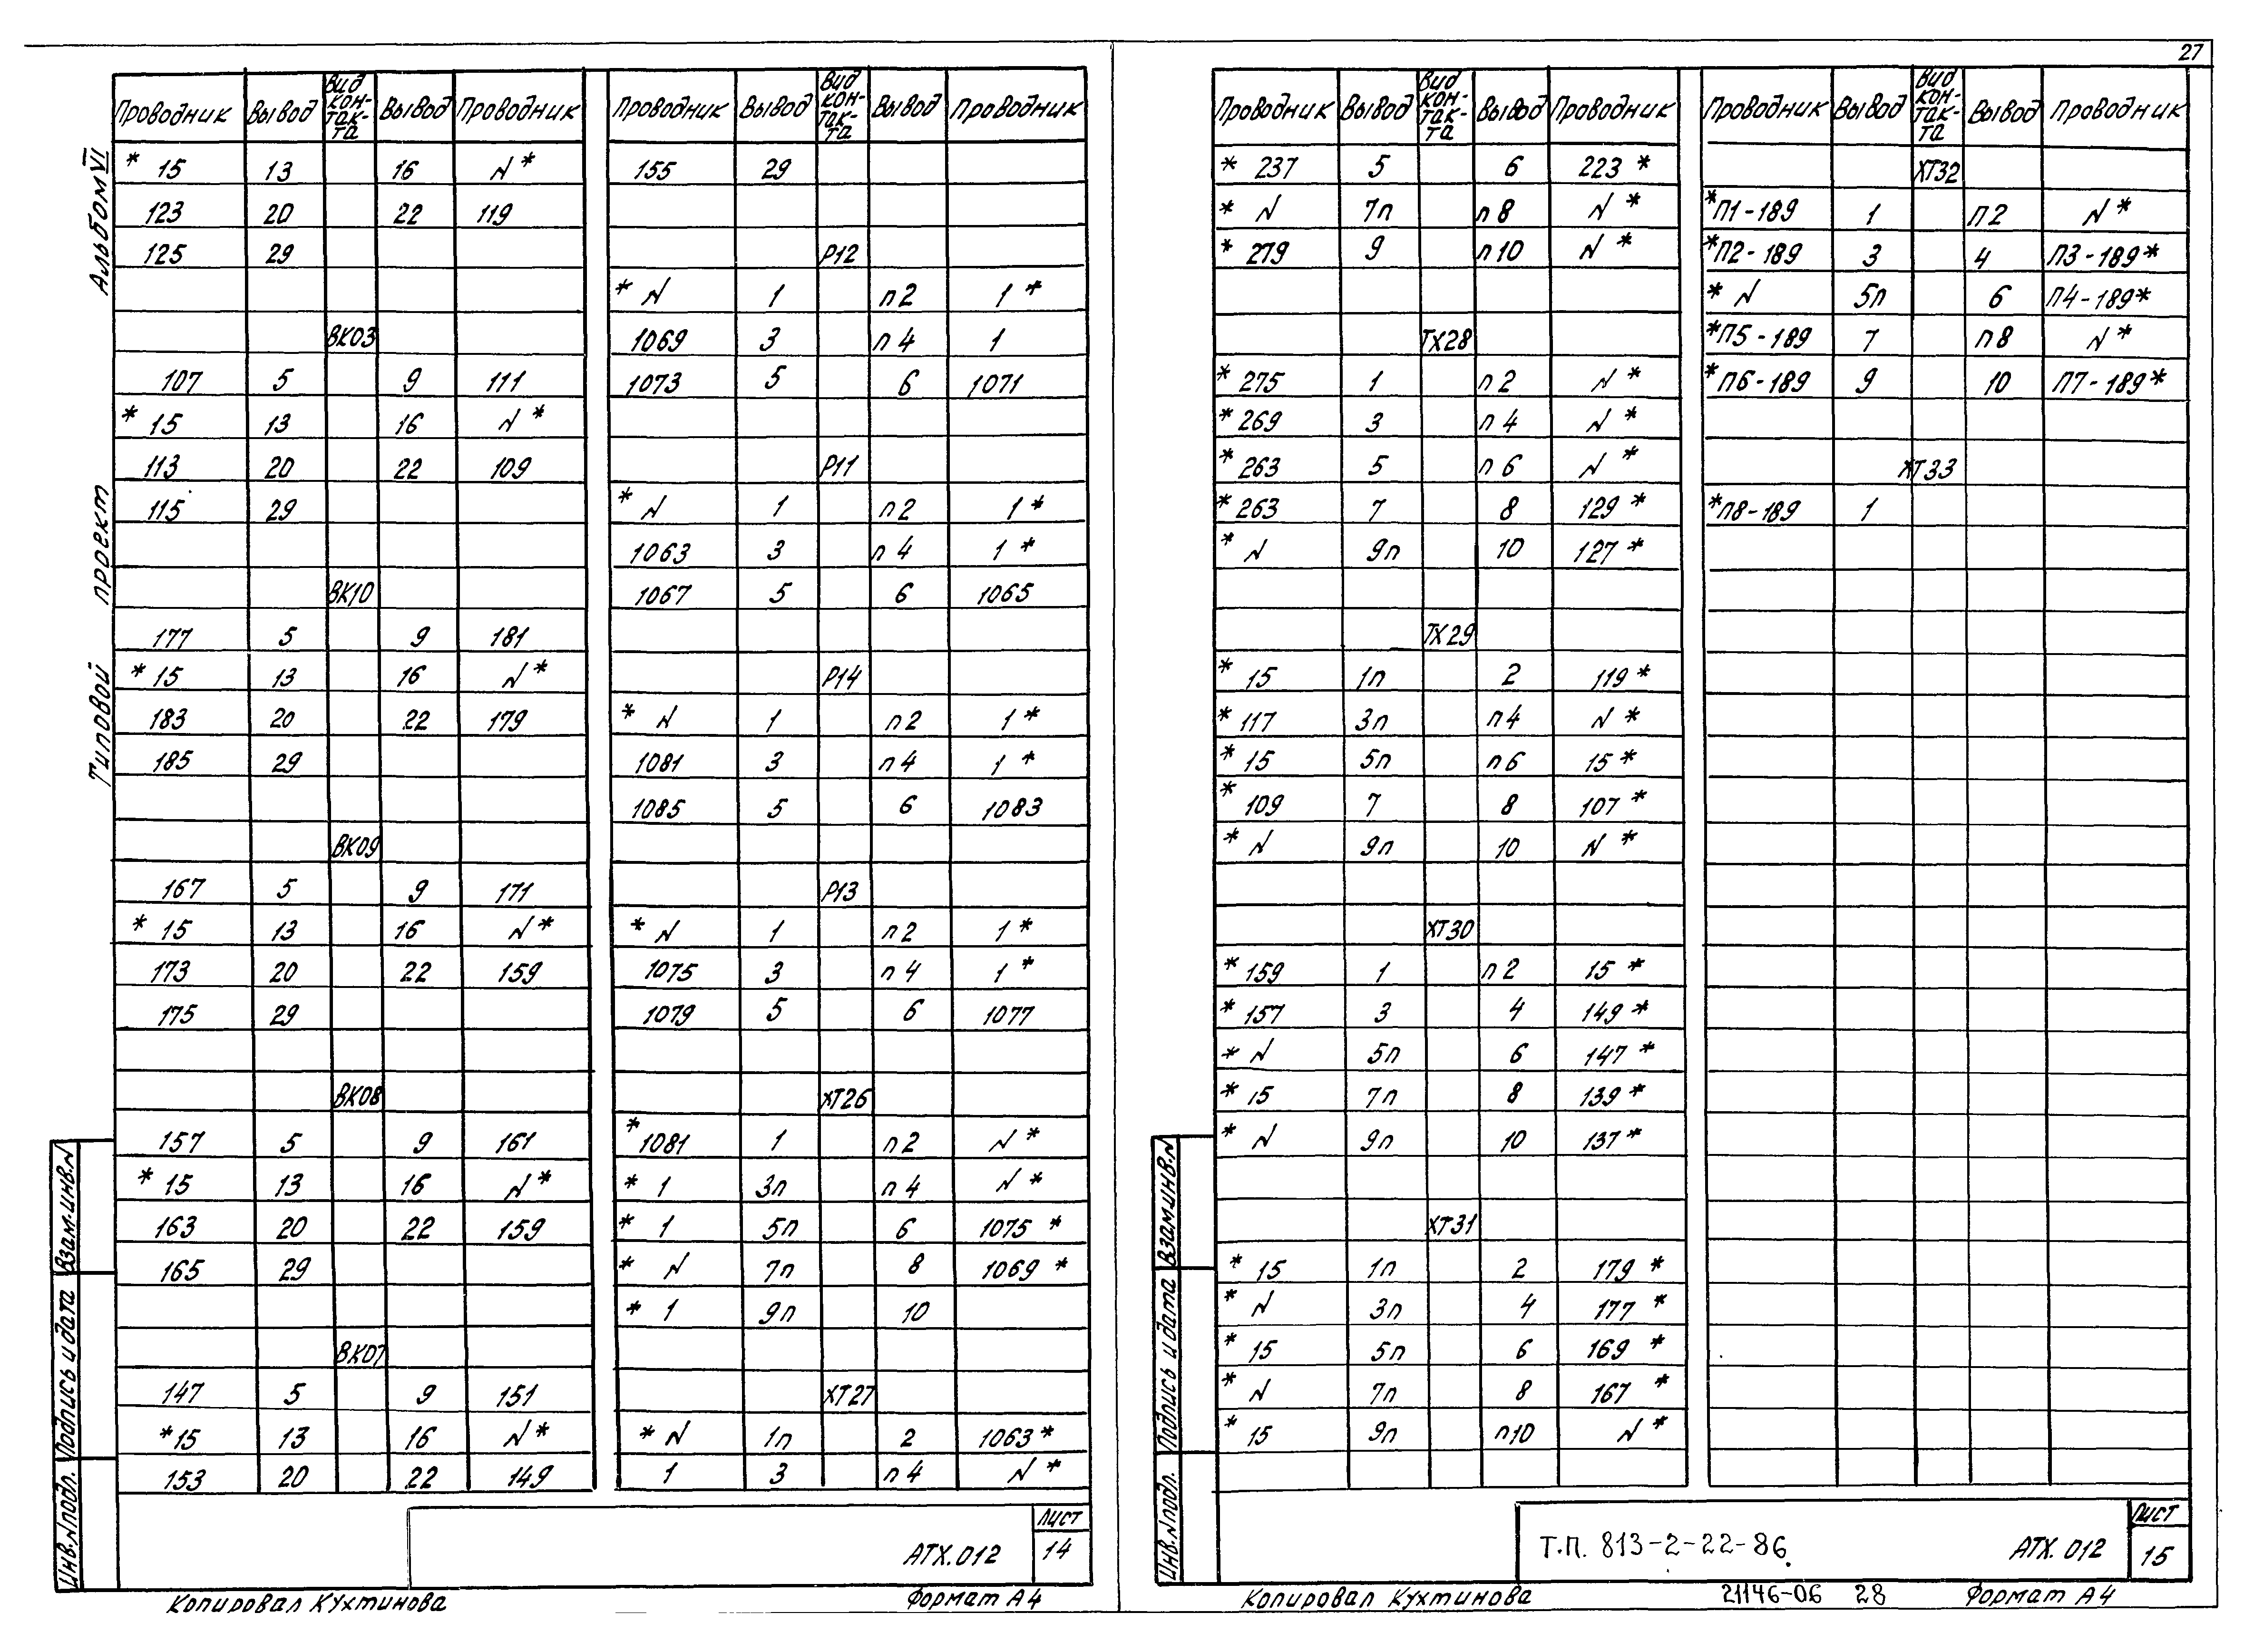 27
Альбом VI
Типовой проект
Проводник Вывод Вид контакта Вывод Проводник
* 15 13 16 N *
123 20 22 119
125 29
ВК03
107 5 9 111
* 15 13 16 N *
113 20 22 109
115 29
ВК10
177 5 9 181
* 15 13 16 N *
183 20 22 179
185 29
ВК09
167 5 9 171
* 15 13 16 N *
173 20 22 159
175 29
ВК08
157 5 9 161
* 15 13 16 N *
163 20 22 159
165 29
ВК07
147 5 9 151
* 15 13 16 N *
153 20 22 149
Проводник Вывод Вид контакта Вывод Проводник
155 29
Р12
* N 1 п2 1 *
1069 3 п4 1
1073 5 6 1071
Р11
* N 1 п2 1 *
1063 3 п4 1 *
1067 5 6 1065
Р14
* N 1 п2 1 *
1081 3 п4 1 *
1085 5 6 1083
Р13
* N 1 п2 1 *
1075 3 п4 1 *
1079 5 6 1077
ХТ26
* 1081 1 п2 N *
* 1 3п п4 N *
* 1 5п 6 1075 *
* N 7п 8 1069 *
* 1 9п 10
ХТ27
* N 1п 2 1063 *
1 3 п4 N *
Взам.инв.N
Подпись и дата
Инв.N подл.
АТХ.012
Лист
14
Копировал Кухтинова Формат А4
Проводник Вывод Вид контакта Вывод Проводник
* 237 5 6 223 *
* N 7п п8 N *
* 279 9 п10 N *
ТХ28
* 275 1 п2 N *
* 269 3 п4 N *
* 263 5 п6 N *
* 263 7 8 129 *
* N 9п 10 127 *
ТХ29
* 15 1п 2 119 *
* 117 3п п4 N *
* 15 5п п6 15 *
* 109 7 8 107 *
* N 9п 10 N *
ХТ30
* 159 1 п2 15 *
* 157 3 4 149 *
* N 5п 6 147 *
* 15 7п 8 139 *
* N 9п 10 137 *
ХТ31
* 15 1п 2 179 *
* N 3п 4 177 *
* 15 5п 6 169 *
* N 7п 8 167 *
* 15 9п п10 N *
Проводник Вывод Вид контакта Вывод Проводник
ХТ32
* П1-189 1 П2 N *
* П2-189 3 4 П3-189 *
* N 5п 6 П4-189 *
* П5-189 7 п8 N *
* П6-189 9 10 П7-189 *
ХТ33
* П8-189 1
Взам.инв.N
Подпись и дата
Инв.N подл.
Т.П. 813-2-22-86. АТХ.012
Лист
15
Копировал Кухтинова 21146-06 28 Формат А4